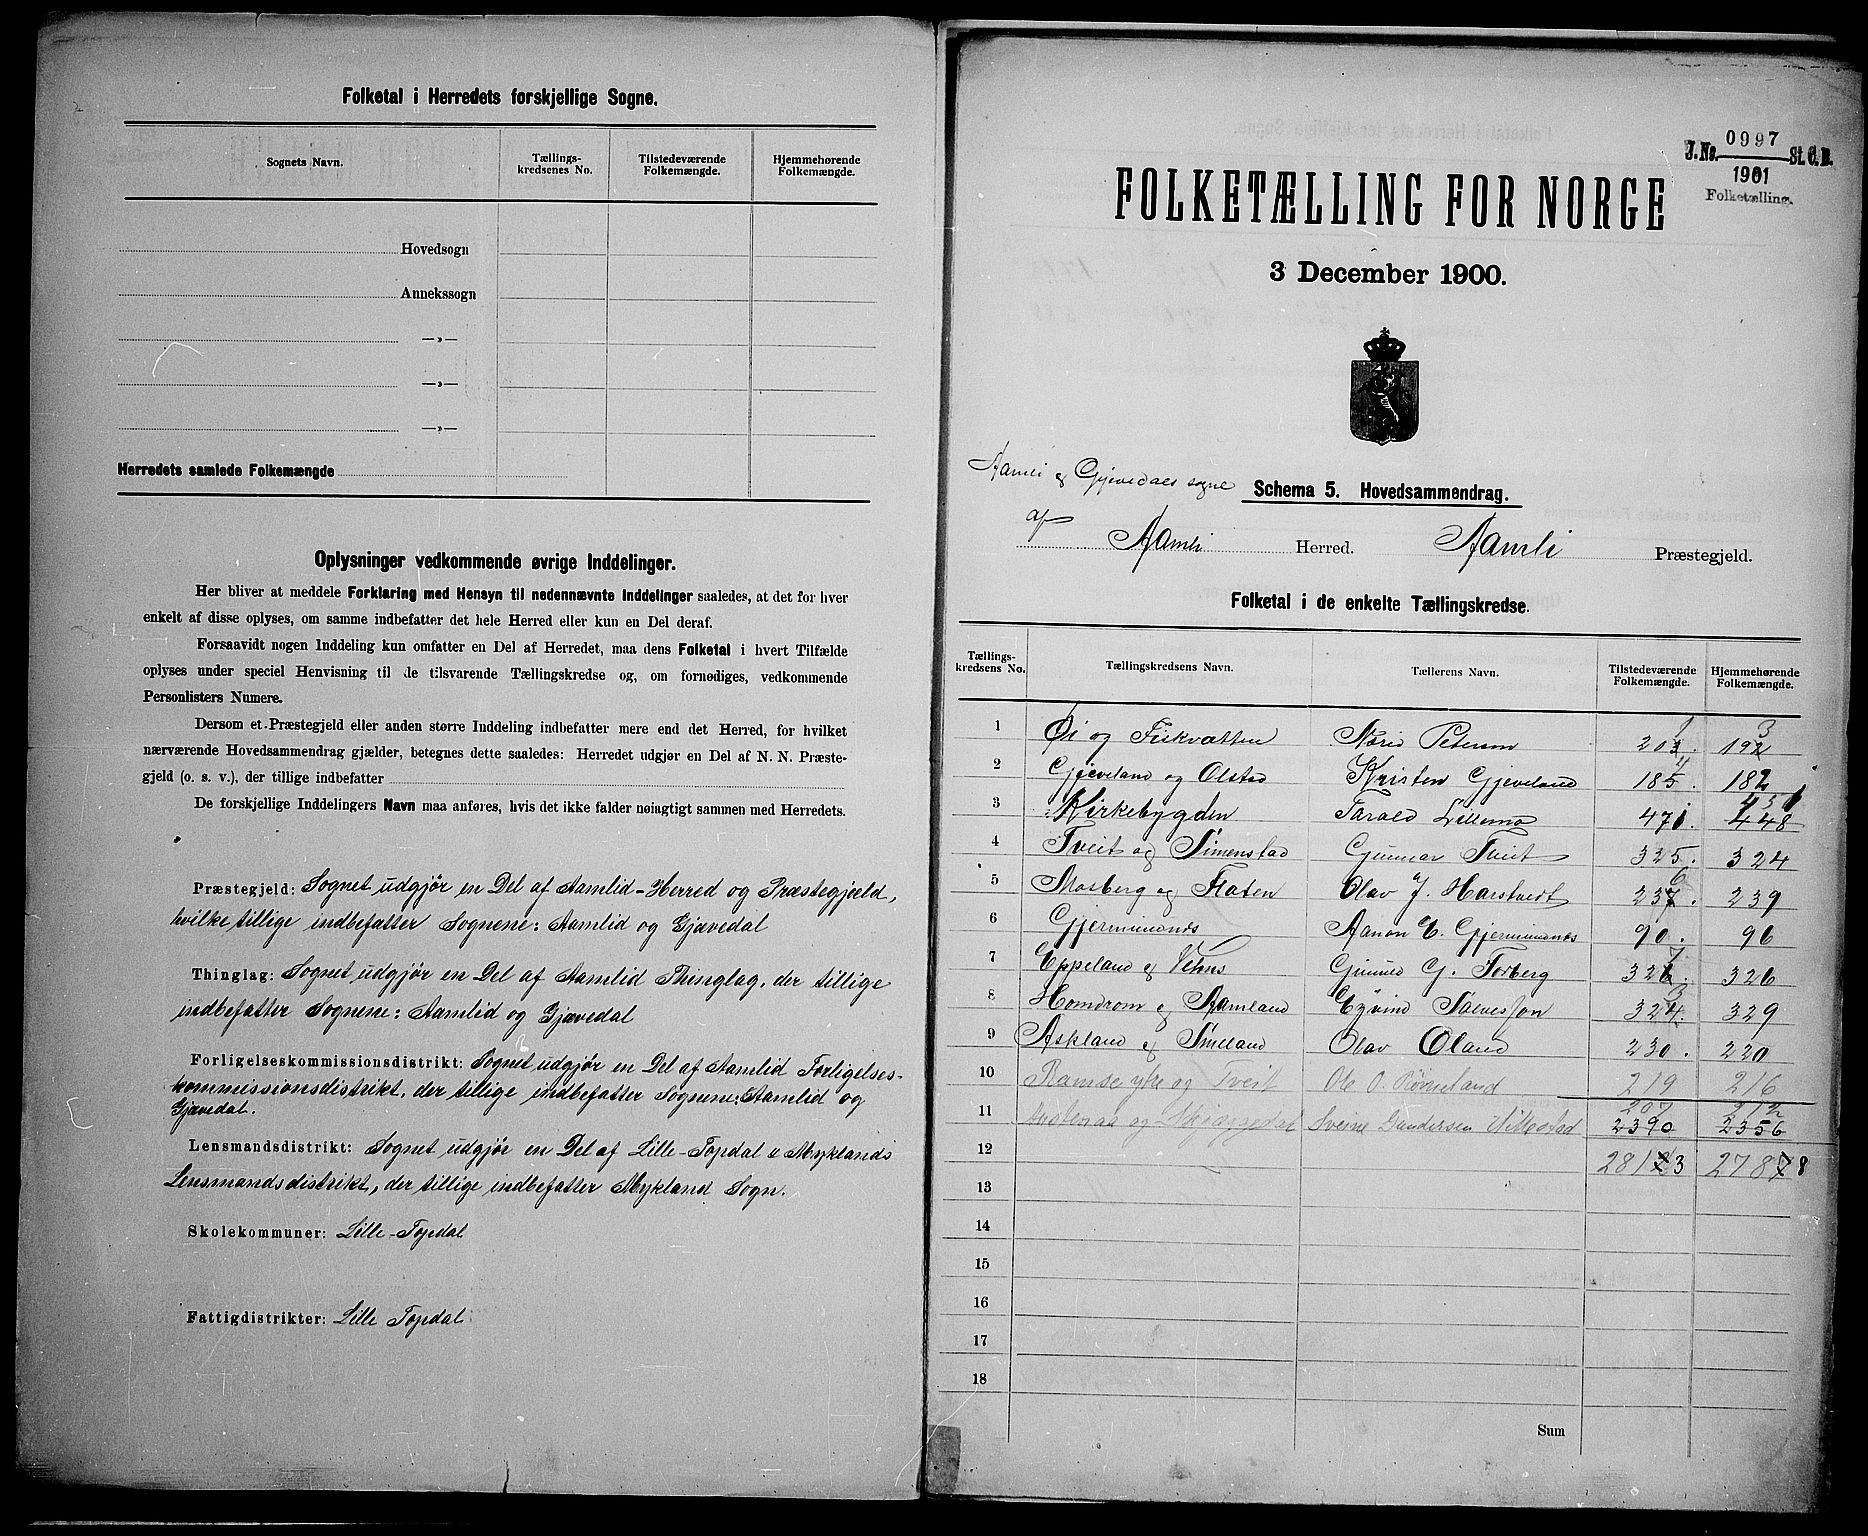 Folketal i Herredets forskjellige Sogne.
Sognets Navn. Tællings-kredsenes No. Tilstedeværende Folkemængde. Hjemmehørende Folkemængde.
Hovedsogn
Annekssogn
—»—
—»—
—»—
Herredets samlede Folkemængde
Oplysninger vedkommende øvrige Inddelinger.
Her bliver at meddele Forklaring med Hensyn til nedennævnte Inddelinger saaledes, at det for hver
enkelt af disse oplyses, om samme indbefatter det hele Herred eller kun en Del deraf.
Forsaavidt nogen Inddeling kun omfatter en Del af Herredet, maa dens Folketal i hvert Tilfælde
oplyses under speciel Henvisning til de tilsvarende Tællingskredse og, om fornødiges, vedkommende
Personlisters Numere.
Dersom et Præstegjeld eller anden større Inddeling indbefatter mere end det Herred, for hvilket
nærværende Hovedsammendrag gjælder, betegnes dette saaledes: Herredet udgjør en Del af N. N. Præste-
gjeld (o. s. v.), der tillige indbefatter
De forskjellige Inddelingers Navn maa anføres, hvis det ikke falder nøiagtigt sammen med Herredets.
Præstegjeld: Sognet udgjør en Del af Aamlid-Herred og Præstegjæld,
hvilke tillige indbefatter Sognene: Aamlid og Gjævedal
Thinglag: Sognet udgjør en Del af Aamlid Thinglag, der tillige
indbefatter Sognene: Aamlid og Gjævedal
Forligelseskommissionsdistrikt: Sognet udgjør en Del af Aamlid Forligelses-
kommissionsdistrikt, der tillige indbefatter Sognene: Aamlid og
Gjævedal.
Lensmandsdistrikt: Sognet udgjør en Del af Lille-Topdal & Myklands
Lensmandsdistrikt, der tillige indbefatter Mykland Sogn.
Skolekommuner: Lille-Topdal
Fattigdistrikter: Lille Topdal
J. No. 0997 St. C. B.
1901
Folketælling.
FOLKETÆLLING FOR NORGE
3 December 1900.
Aamli & Gjevedals sogne Schema 5. Hovedsammendrag.
af Aamli Herred. Aamli Præstegjeld.
Folketal i de enkelte Tællingskredse.
Tællings-kredsens No. Tællingskredsens Navn. Tællerens Navn. Tilstedeværende Folkemængde. Hjemmehørende Folkemængde.
1 Øi og Fiskvatten Peterson 1 3
2 Gjeveland og Olstad Kristen Gjeveland 185. 182
3 Kirkebygden Tarald Lillemo 471. 451 448
4 Tveit og Simenstad Gunnar Tveit 325. 324
5 Mosberg og Flaten Olav J. Harstveit 237. 6 239
6 Gjermundnes Aanon E. Gjermundnes 90. 96
7 Eppeland & Vehus Gunuld G. Torberg 326. 7 326
8 Homdrom og Aamland Eyvind Salvesson 324. 3 329
9 Askland & Smeland Olav Øland 230. 220
10 Ramse ytre og Tveit Ole O. Rømeland 219 216
11 og Skjeggedal Sveine Gundersen 207 212
2390 2356
12 2812 3 2787 8
13
14
15
16
17
18
Sum